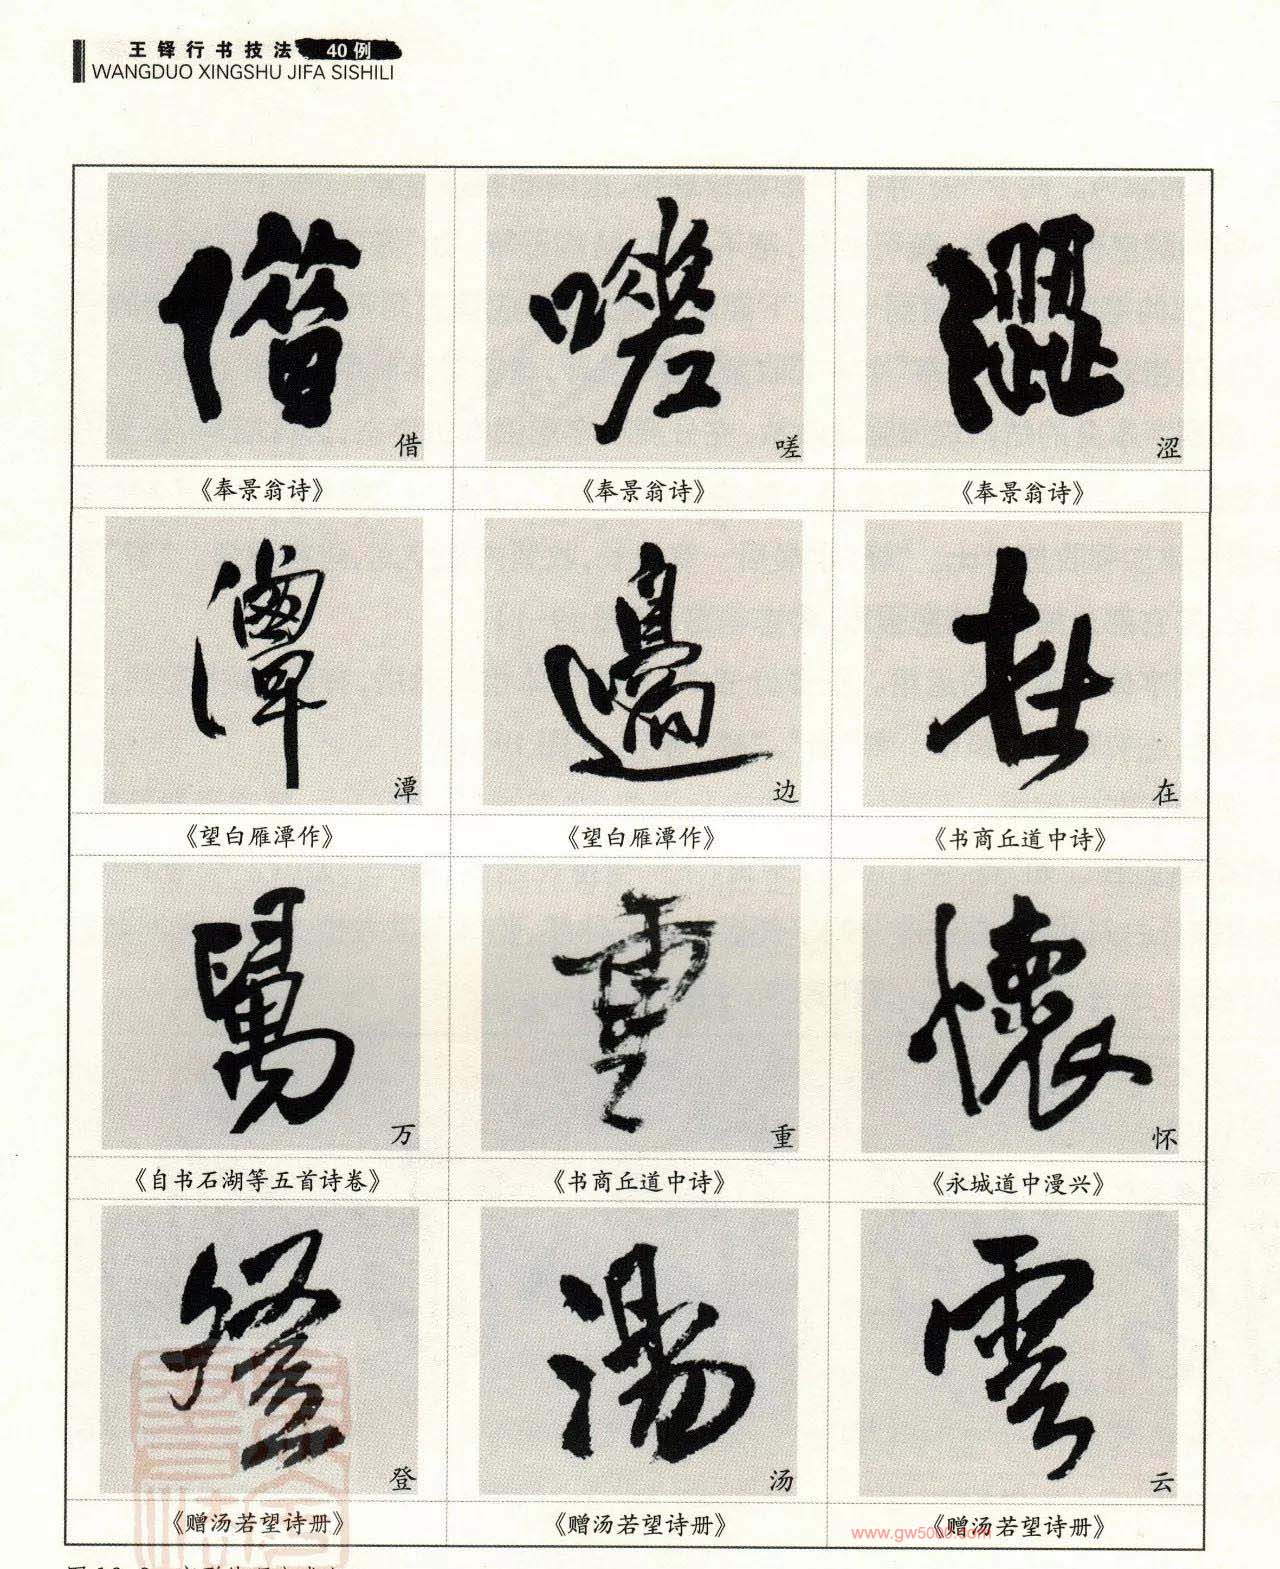 王铎行书技法 40例
WANGDUO XINGSHU JIFA SISHILI
借 嗟 涩
《奉景翁诗》 《奉景翁诗》 《奉景翁诗》
潭 边 在
《望白雁潭作》 《望白雁潭作》 《书商丘道中诗》
万 重 怀
《自书石湖等五首诗卷》 《书商丘道中诗》 《永城道中漫兴》
登 汤 云
《赠汤若望诗册》 《赠汤若望诗册》 《赠汤若望诗册》
www.gw5000.com